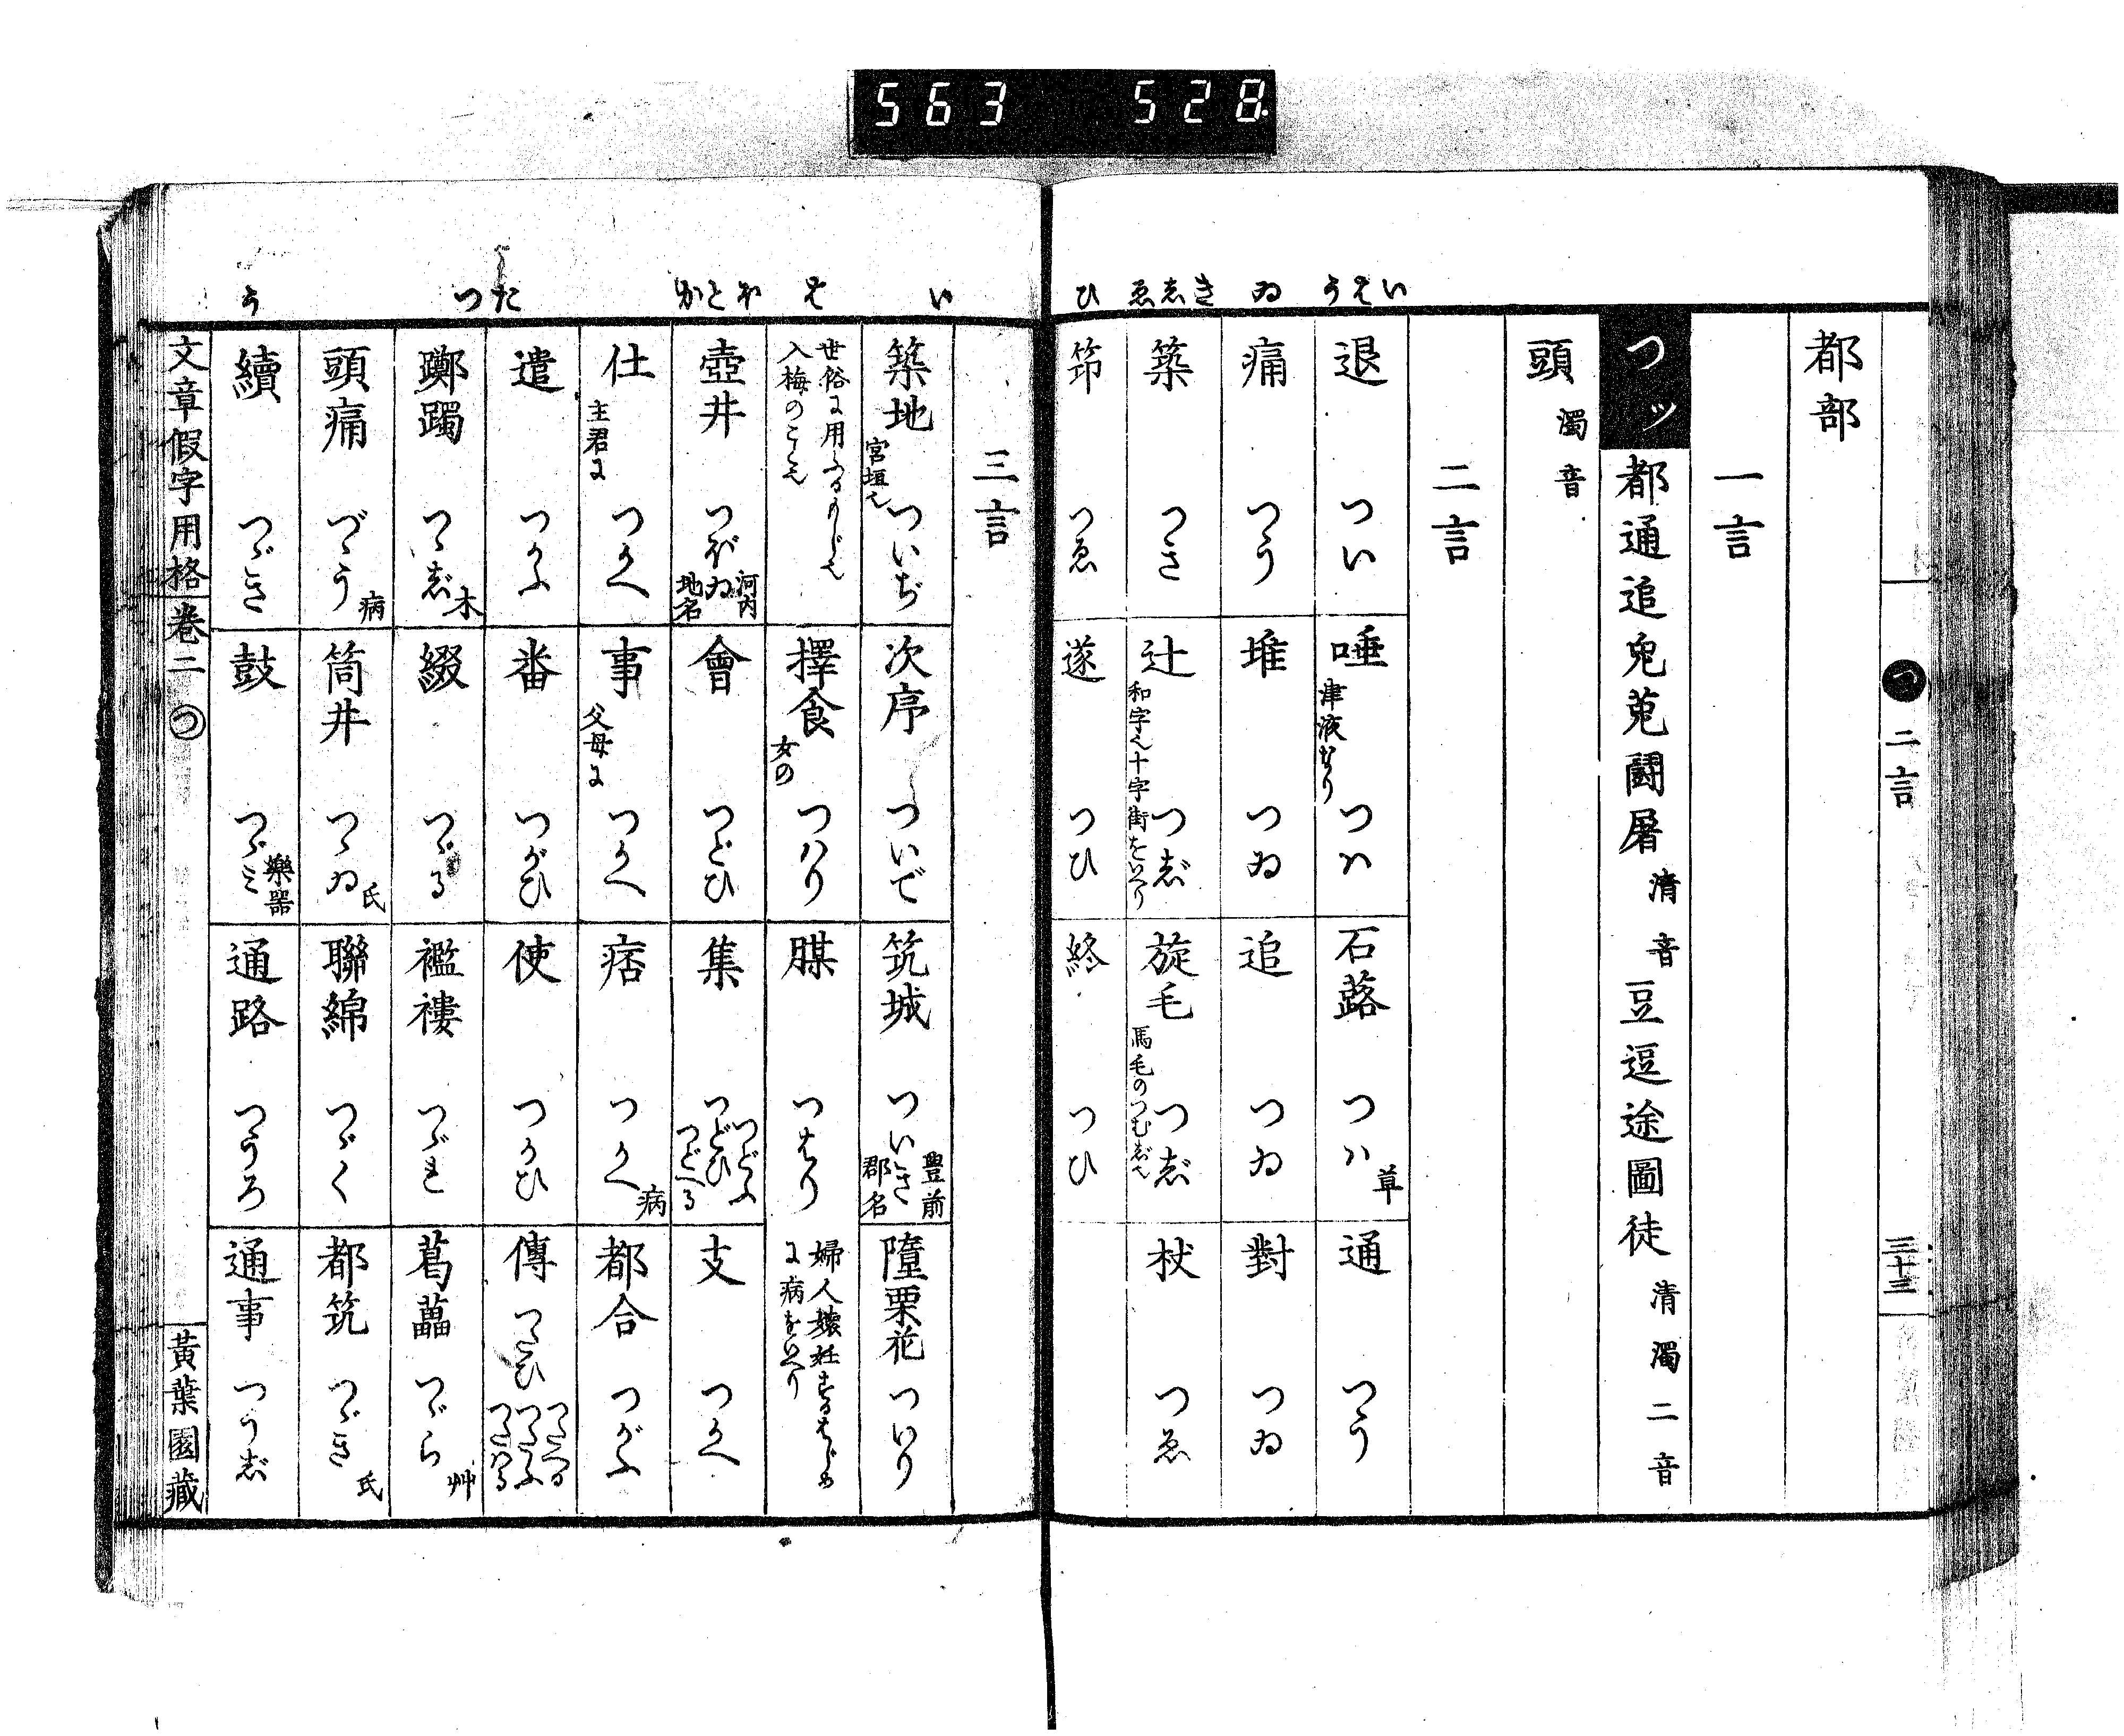 563 528
いはう ゐ きじゑ ひ
都部
一言
つッ 都通追兔菟鬪屠 清音 豆逗途圖徒 清濁二音
頭 濁音
二言
退 つい
唾 津液なり つハ
石蕗 つハ 草
通 つう
痛 つう
堆 つゐ
追 つゐ
對 つゐ
築 つき
辻 和字也十字街をいへり つじ
旋毛 馬毛のつむじ也 つじ
杖 つゑ
笻 つゑ
遂 つひ
終 つひ
つ 二言 三十三
い は ほとか たつ う
三言
築地 宮垣也 ついぢ
次序 ついで
筑城 ついき 豊前郡名
墮栗花 ついり
世俗に用ふるもじ也
入梅のこと也
擇食 女の つハり
腜 つはり
婦人懐妊するはじめ
に病をいへり
壺井 つぼゐ 河内地名
會 つどひ
集 つどひ つどふ つどへる
支 つかへ
仕 主君に つかへ
事 父母に つかへ
痞 つかへ 病
都合 つがふ
遣 つかふ
番 つがひ
使 つかひ
傳 つたひ つたへる つたふ つたハる
躑躅 つゝじ 木
綴 つゞる
襤褸 つゞれ
葛藟 つゞら 艸
頭痛 づゝう 病
筒井 つゝゐ 氏
聯綿 つゞく
都筑 つゞき 氏
續 つゞき
鼓 つゞミ 樂器
通路 つうろ
通事 つうじ
文章假字用格 卷二 つ 黃葉園藏